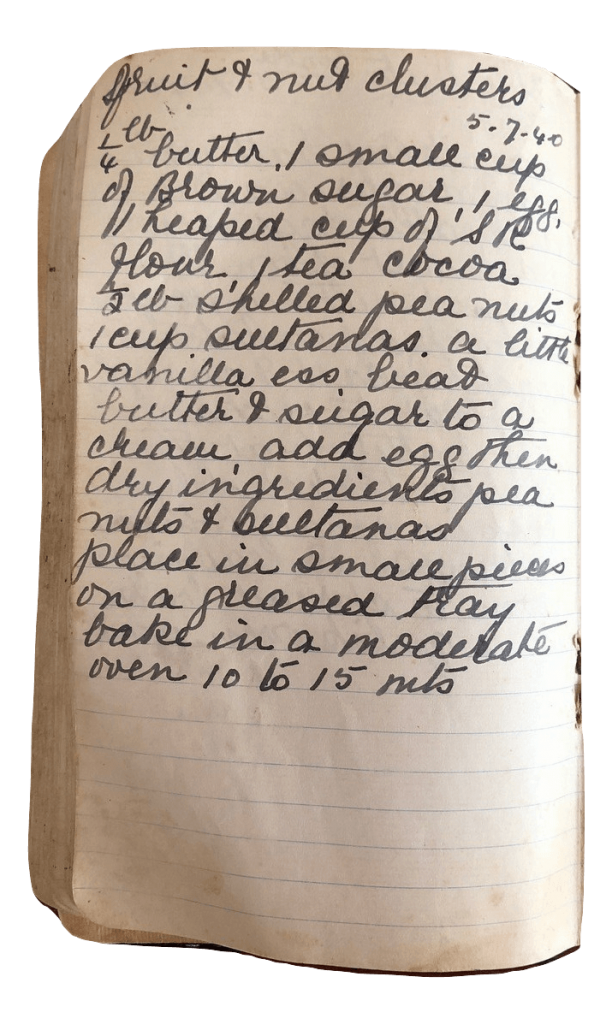 Fruit & nut clusters
5.7.40
1/4 lb butter, 1 small cup
of Brown sugar, 1 egg,
1 heaped cup of S R
flour, 1 tea cocoa
1/2 lb shelled pea nuts
1 cup sultanas. a little
vanilla ess beat
butter & sugar to a
cream, add egg then
dry ingredients pea
nuts & sultanas
place in small pieces
on a greased tray
bake in a moderate
oven 10 to 15 mts